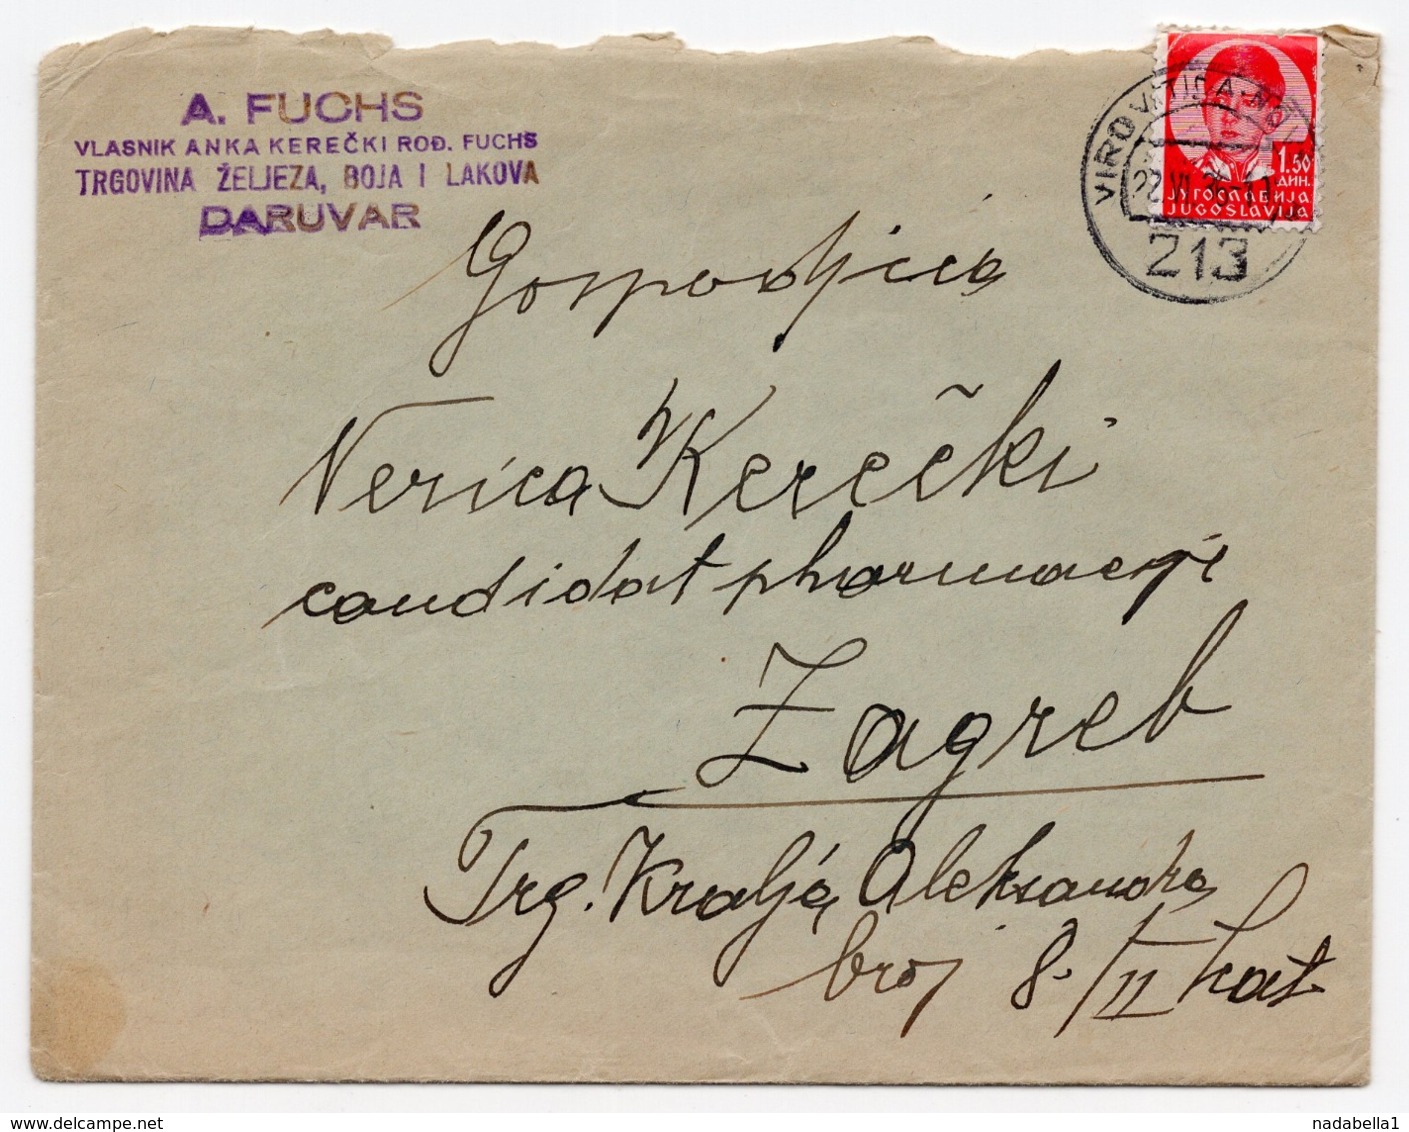 A. FUCHS
VLASNIK ANKA KEREČKI ROĐ. FUCHS
TRGOVINA ŽELJEZA, BOJA I LAKOVA
DARUVAR
1.50
ДИН.
ЈУГОСЛАВИЈА
JUGOSLAVIJA
VIROVITICA
213
Gospodjica
Verica Kerečki
candidat pharmacije
Zagreb
Trg. Kralja Aleksandra
broj 8./II kat
delcampe.net
nadabella1